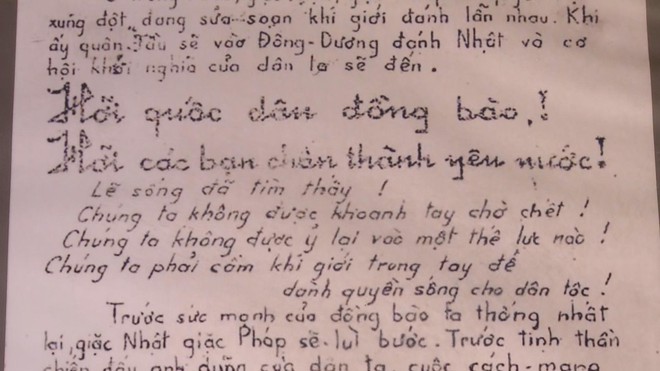 xung đột, đang sửa-soạn khí giới đánh lẫn nhau. Khi
ấy quân Tầu sẽ vào Đông-Dương đánh Nhật và cơ
hội khởi nghĩa của dân ta sẽ đến.
Hỡi quốc dân đồng bào!
Hỡi các bạn chân thành yêu nước!
Lẽ sống đã tìm thấy!
Chúng ta không được khoanh tay chờ chết!
Chúng ta không được ỷ lại vào một thế lực nào!
Chúng ta phải cầm khí giới trong tay để
dành quyền sống cho dân tộc!
Trước sức mạnh của đồng bào ta thống nhất
lại, giặc Nhật giặc Pháp sẽ lùi bước. Trước tinh thần
chiến đấu anh dũng của dân ta, cuộc cách-mạng